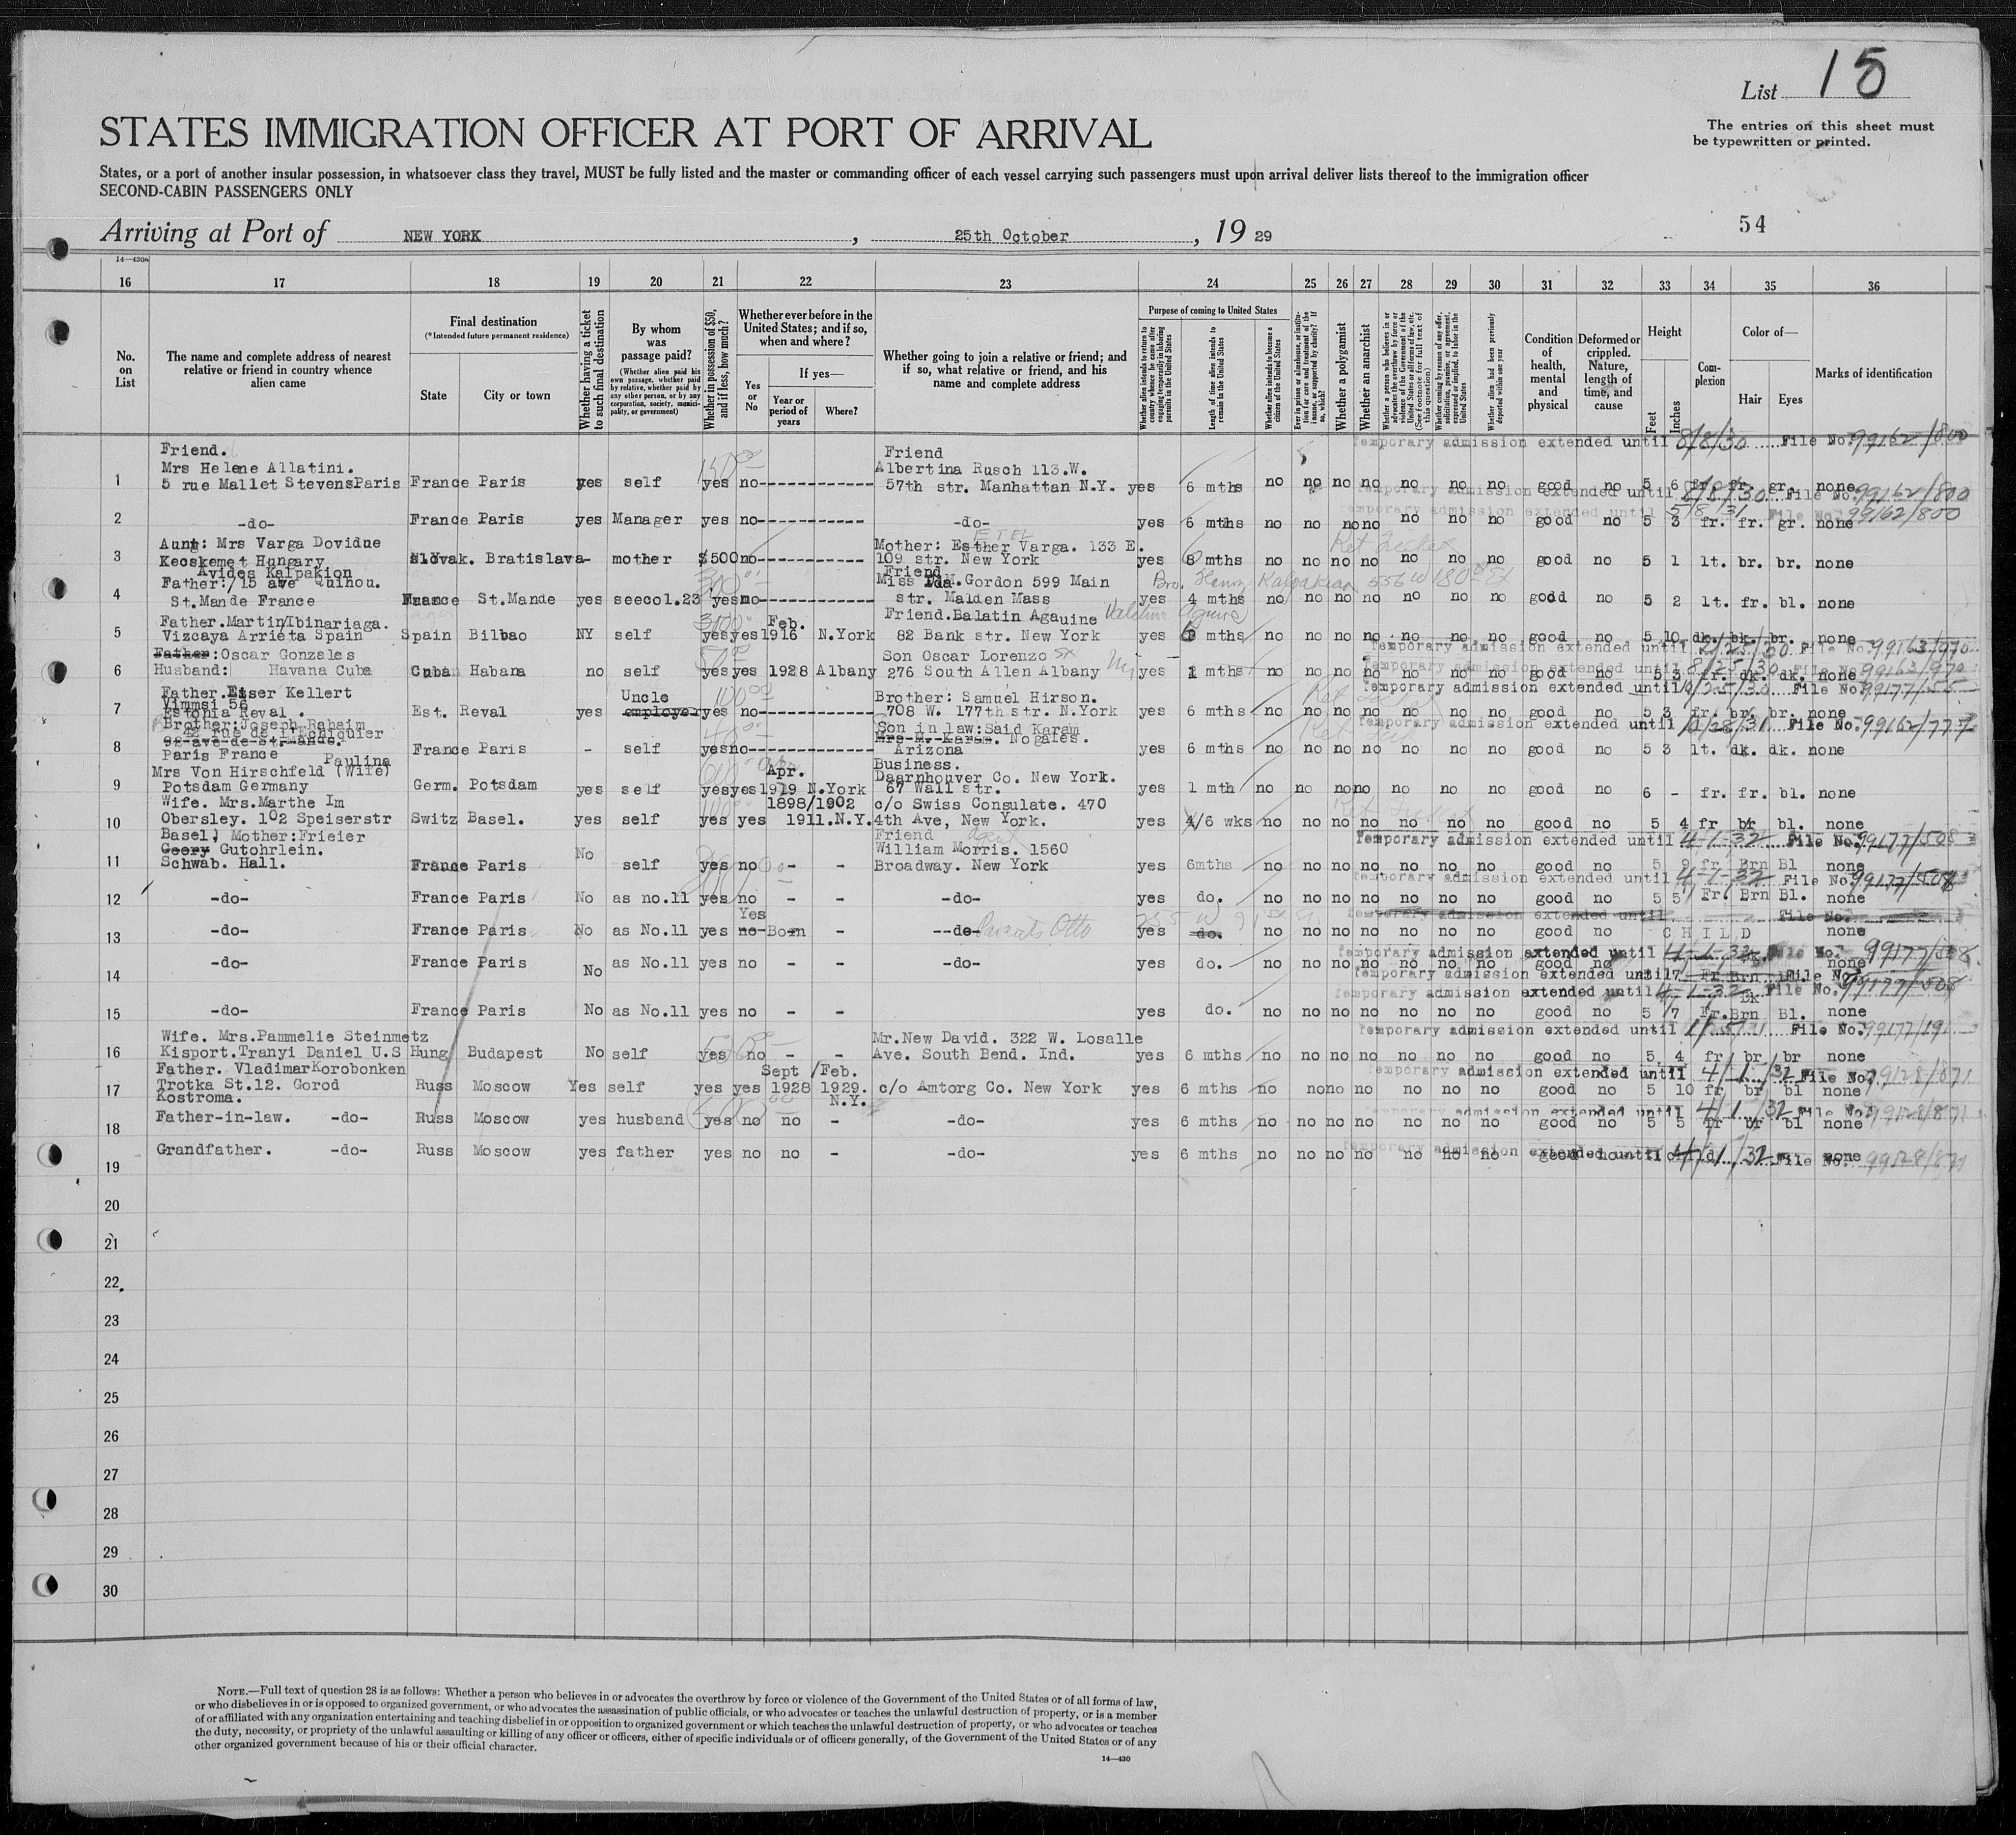 List 15
The entries on this sheet must
be typewritten or printed.
STATES IMMIGRATION OFFICER AT PORT OF ARRIVAL
States, or a port of another insular possession, in whatsoever class they travel, MUST be fully listed and the master or commanding officer of each vessel carrying such passengers must upon arrival deliver lists thereof to the immigration officer
SECOND-CABIN PASSENGERS ONLY
54
Arriving at Port of NEW YORK, 25th October, 19 29
14—430a
16 17 18 19 20 21 22 23 24 25 26 27 28 29 30 31 32 33 34 35 36
No. on List
The name and complete address of nearest relative or friend in country whence alien came
Final destination
(*Intended future permanent residence)
State
City or town
Whether having a ticket to such final destination
By whom was passage paid?
(Whether alien paid his own passage, whether paid by relative, whether paid by any other person, or by any corporation, society, municipality, or government)
Whether in possession of $50, and if less, how much?
Whether ever before in the United States; and if so, when and where?
Yes or No
If yes—
Year or period of years
Where?
Whether going to join a relative or friend; and if so, what relative or friend, and his name and complete address
Purpose of coming to United States
Whether alien intends to return to country whence he came after engaging temporarily in laboring pursuits in the United States
Length of time alien intends to remain in the United States
Whether alien intends to become a citizen of the United States
Ever in prison or almshouse, or institution for care and treatment of the insane, or supported by charity? If so, which?
Whether a polygamist
Whether an anarchist
Whether a person who believes in or advocates the overthrow by force or violence of the Government of the United States or all forms of law, etc. (See footnote for full text of this question)
Whether coming by reason of any offer, solicitation, promise, or agreement, expressed or implied, to labor in the United States
Whether alien had been previously deported within one year
Condition of health, mental and physical
Deformed or crippled. Nature, length of time, and cause
Height
Feet
Inches
Complexion
Color of—
Hair
Eyes
Marks of identification
Temporary admission extended until 8/8/30 File No. 99162/800
Friend.
Mrs Helene Allatini.
Friend
Albertina Rusch 113.W.
1 5 rue Mallet StevensParis France Paris yes self yes no------------ 57th str. Manhattan N.Y. yes 6 mths no no no no no no no good no 5 6 fr. fr. gr. none
Temporary admission extended until 8/8/30 File No. 99162/800
Temporary admission extended until 5/8/31 File No. 99162/800
2 -do- France Paris yes Manager yes no------------ -do- yes 6 mths no no no no no no no good no 5 3 fr. fr. gr. none
Aunt: Mrs Varga Dovidue
Mother: Esther Varga. 133 E.
3 Kecskemet Hungary Slovak. Bratislava- mother $500 no------------ 109 str. New York yes 6 mths no no no no no no no good no 5 1 lt. br. br. none
Avides Kalpakion
Father:/15 ave Quihou.
Friend
Miss Gordon 599 Main
Bro. Henry Kalpakian 536 W 180 St
4 St.Mande France France St.Mande yes seecol.23 yes no------------ str. Malden Mass yes 4 mths no no no no no no no good no 5 2 lt. fr. bl. none
Father.Martin/Ibinariaga.
Feb.
Friend.Balatin Agauine Valentine Aguire
5 Vizcaya Arrieta Spain Spain Bilbao NY self yes yes 1916 N.York 82 Bank str. New York yes 6 mths no no no no no no no good no 5 10 dk. bk. br. none
Father:Oscar Gonzales
Son Oscar Lorenzo
Temporary admission extended until File No. 99163/970
6 Husband: Havana Cuba Cuba Habana no self yes yes 1928 Albany 276 South Allen Albany yes mths no no no no no no no good no 5 3 fr. dk. dk. none
Temporary admission extended until 8/25/30 File No. 99163/970
Father.Eiser Kellert
Uncle
Brother: Samuel Hirson.
Temporary admission extended until File No. 99177/55
Vimmsi 56
7 Estonia Reval. Est. Reval yes employer yes no------------ 708 W. 177th str. N.York yes 6 mths no no no no no no no good no 5 3 fr. br. br. none
Brother:Joseph Rahaim
42 rue de l'Echiquier
92 ave de St.Mande.
Son in law:Said Karam
Mrs M. Karam. Nogales.
Temporary admission extended until 10/28/31 File No. 99162/777
8 Paris France France Paris - self yes no------------ Arizona yes 6 mths no no no no no no no good no 5 3 lt. dk. dk. none
Paulina
Mrs Von Hirschfeld (Wife)
Apr.
Business.
Daarnhouver Co. New York.
9 Potsdam Germany Germ. Potsdam yes self yes yes 1919 N.York 67 Wall str. yes 1 mth no no no no no no no good no 6 - fr. fr. bl. none
Wife. Mrs.Marthe Im
1898/1902
c/o Swiss Consulate. 470
10 Obersley. 102 Speiserstr Switz Basel. yes self yes yes 1911.N.Y. 4th Ave, New York. yes 4/6 wks no no no no no no no good no 5 4 fr br bl. none
Basel, Mother:Frieier
Friend
Temporary admission extended until 4-1-32 File No. 99177/508
Geery Gutohrlein.
No
William Morris. 1560
11 Schwab. Hall. France Paris self yes no - - Broadway. New York yes 6mths no no no no no no no good no 5 9 fr Brn Bl none
Temporary admission extended until 4-1-32 File No. 99177/508
12 -do- France Paris No as no.11 yes no - - -do- yes do. no no no no no no no good no 5 5 Fr. Brn Bl. none
Yes
255 W 91st St.
Temporary admission extended until File No.
13 -do- France Paris No as No.11 yes no-Born - --do- Parents Otto yes do. no no no no no no no good no CHILD none
Temporary admission extended until 4-1-32 File No. 99177/508
14 -do- France Paris No as No.11 yes no - - -do- yes do. no no no no no no no good no 7 Fr Brn none
Temporary admission extended until File No.
Temporary admission extended until 4-1-32 File No. 99177/508
15 -do- France Paris No as No.11 yes no - - yes do. no no no no no no no good no 5 7 Fr.Brn Bl. none
Wife. Mrs.Pammelie Steinmetz
Mr.New David. 322 W. Losalle
Temporary admission extended until File No. 99177/19
16 Kisport.Tranyi Daniel U.S Hung Budapest No self yes no - - Ave. South Bend. Ind. yes 6 mths no no no no no no no good no 5 4 fr br br none
Father. Vladimar Korobonken
Sept /Feb.
Temporary admission extended until 4/1/32 File No. 99128/871
17 Trotka St.12. Gorod Russ Moscow Yes self yes yes 1928 1929. c/o Amtorg Co. New York yes 6 mths no no no no no no no good no 5 10 fr br bl none
Kostroma.
N.Y.
Temporary admission extended until 4/1/32 File No. 99128/871
18 Father-in-law. -do- Russ Moscow yes husband yes no no - -do- yes 6 mths no no no no no no no good no 5 5 br br bl none
19 Grandfather. -do- Russ Moscow yes father yes no no - -do- yes 6 mths no no no no no no no good no child none
Temporary admission extended until 4/1/32 File No. 99128/871
20
21
22
23
24
25
26
27
28
29
30
NOTE.—Full text of question 28 is as follows: Whether a person who believes in or advocates the overthrow by force or violence of the Government of the United States or of all forms of law,
or who disbelieves in or is opposed to organized government, or who advocates the assassination of public officials, or who advocates or teaches the unlawful destruction of property, or is a member
of or affiliated with any organization entertaining and teaching disbelief in or opposition to organized government or which teaches the unlawful destruction of property, or who advocates or teaches
the duty, necessity, or propriety of the unlawful assaulting or killing of any officer or officers, either of specific individuals or of officers generally, of the Government of the United States or of any
other organized government because of his or their official character.
14—430